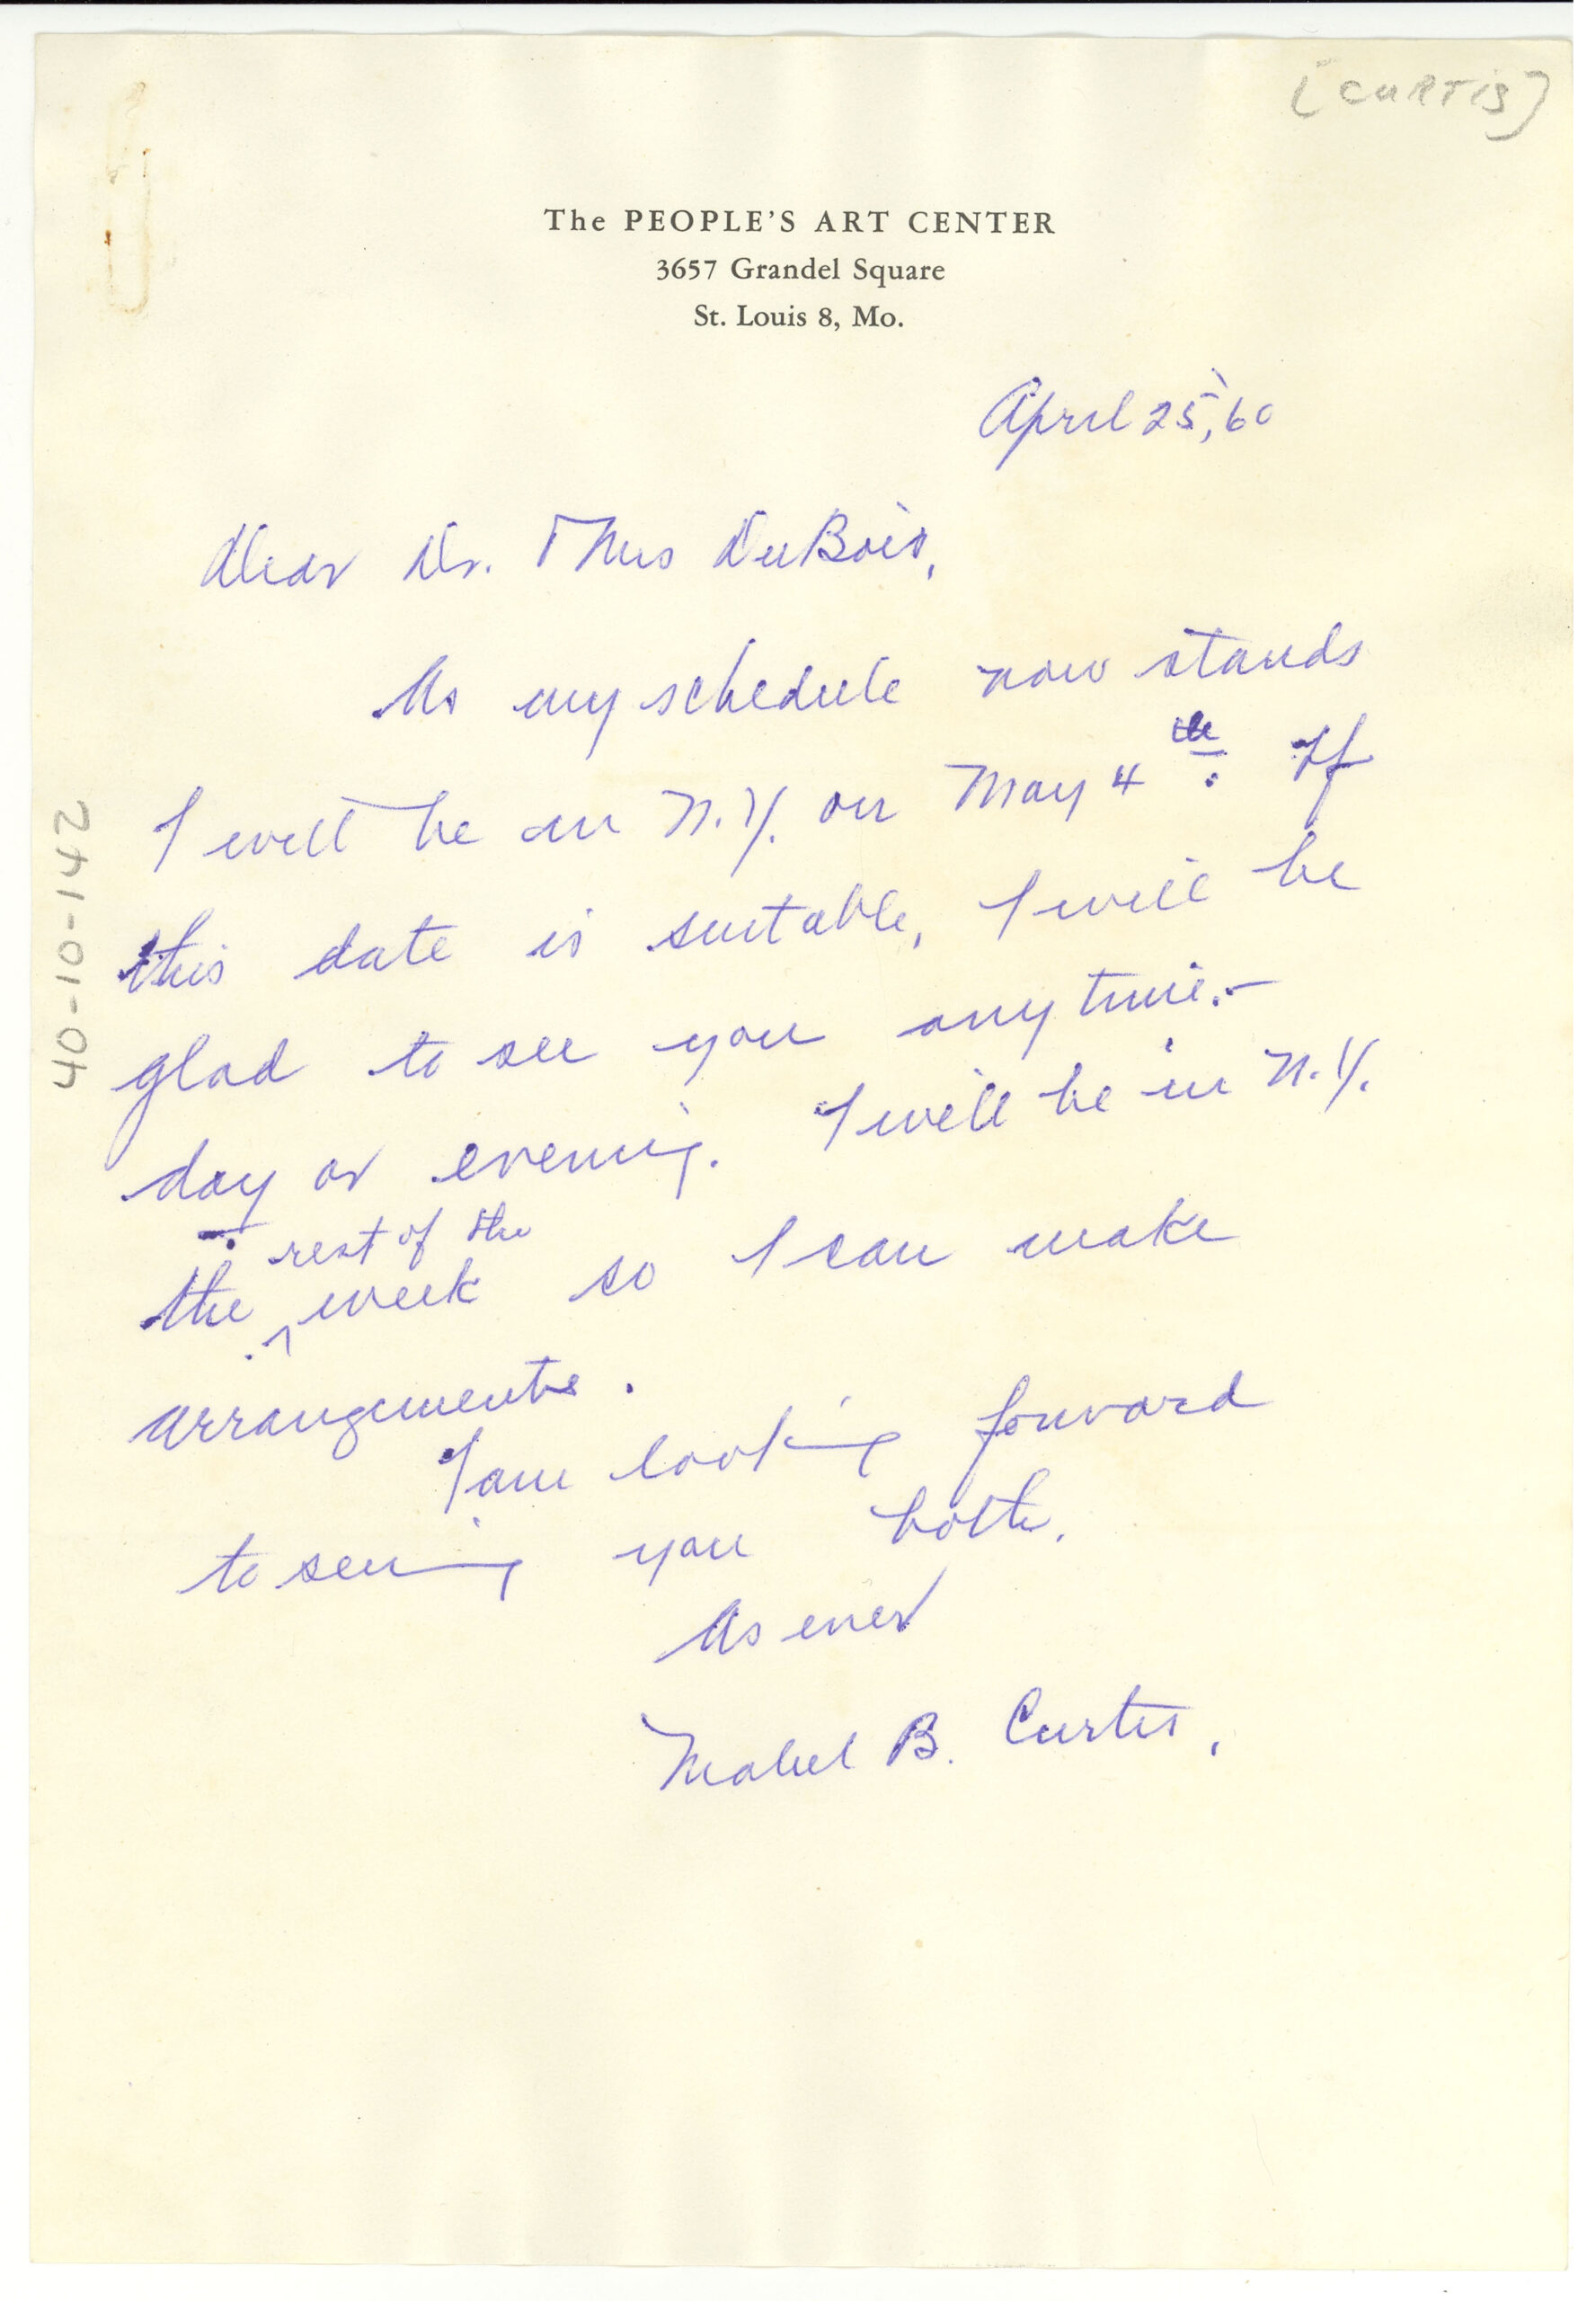 [CURTIS]
The PEOPLE'S ART CENTER
3657 Grandel Square
St. Louis 8, Mo.
April 25, 60
Dear Dr. & Mrs DuBois,
As my schedule now stands
I will be in N.Y. on May 4th. If
this date is suitable, I will be
glad to see you any time. -
day or evening. I will be in N.Y.
the rest of the week so I can make
arrangements.
I am looking forward
to seeing you both.
As ever
Mabel B. Curtis,
40-10-142